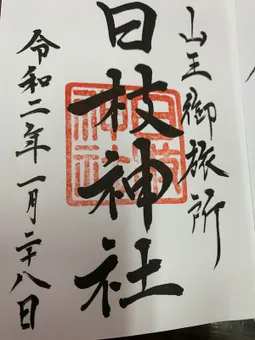 山王御旅所
日枝神社
令和二年一月二十八日